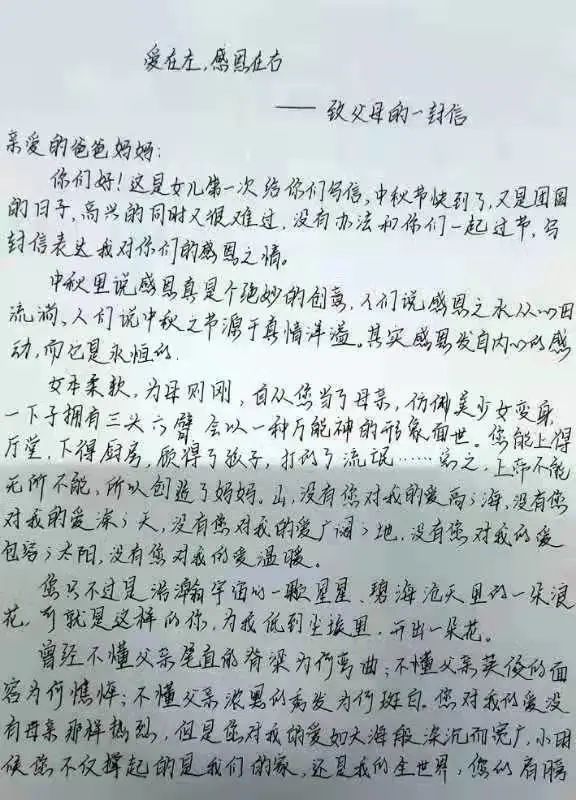 爱在左,感恩在右
——致父母的一封信
亲爱的爸爸妈妈:
你们好!这是女儿第一次给你们写信,中秋节快到了,又是团圆
的日子,高兴的同时又很难过,没有办法和你们一起过节,写
封信表达我对你们的感恩之情。
中秋里说感恩真是个绝妙的创意,人们说感恩之水从心田
流淌、人们说中秋之节源于真情洋溢。其实感恩发自内心的感
动,而它是永恒的.
女本柔软,为母则刚,自从您当了母亲,仿佛美少女变身
一下子拥有三头六臂,会以一种万能神的形象面世。您能上得
厅堂,下得厨房,欣得了孩子,打得了流氓……总之,上帝不能
无所不能,所以创造了妈妈。山,没有您对我的爱高;海,没有您
对我的爱深;天,没有您对我的爱广阔;地,没有您对我的爱
包容;太阳,没有您对我的爱温暖。
您只不过是浩瀚宇宙的一颗星星、碧海沧天里的一朵浪
花,可就是这样的你,为我低到尘埃里,开出一朵花。
曾经不懂父亲笔直的脊梁为何弯曲;不懂父亲英俊的面
容为何憔悴;不懂父亲浓黑的秀发为何斑白。您对我的爱没
有母亲那样热烈,但是您对我的爱如大海般深沉而宽广,小时
候您不仅撑起的是我们的家,还是我的全世界,您的肩膀